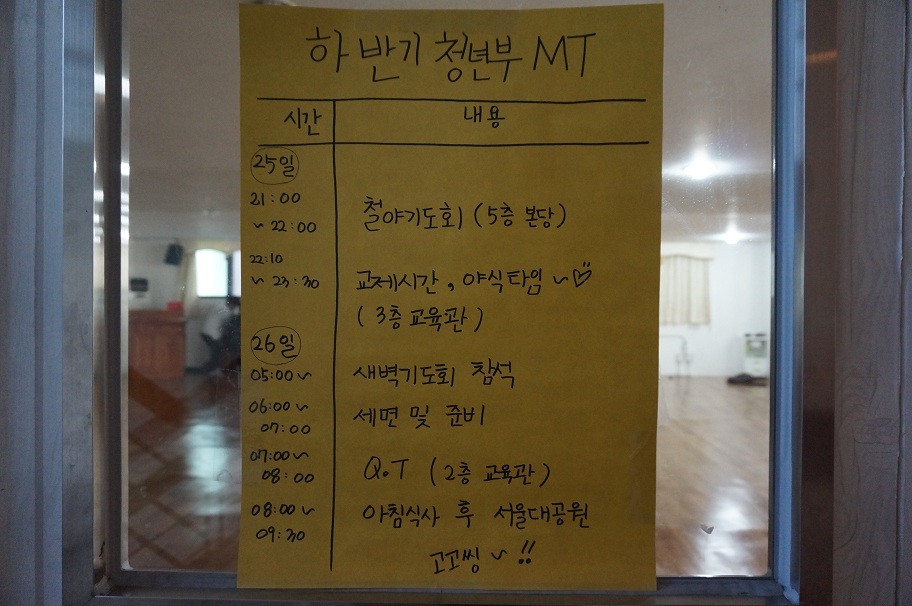 하반기 청년부 MT
시간 내용
25일
21:00
~ 22:00 철야기도회 (5층 본당)
22:10
~ 23:30 교제시간, 야식타임 ~♡
(3층 교육관)
26일
05:00~ 새벽기도회 참석
06:00~
07:00 세면 및 준비
07:00~
08:00 Q.T (2층 교육관)
08:00~ 아침식사 후 서울대공원
09:30
고고씽~!!